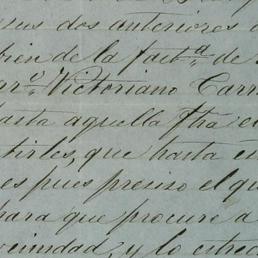 sus dos anteriores
bien de la fact.ª de
gr.º Victoriano Carr
hasta aquella fha e
tirles, que hasta es
es pues preciso el qu
para que procure a
vecindad, y lo estrec